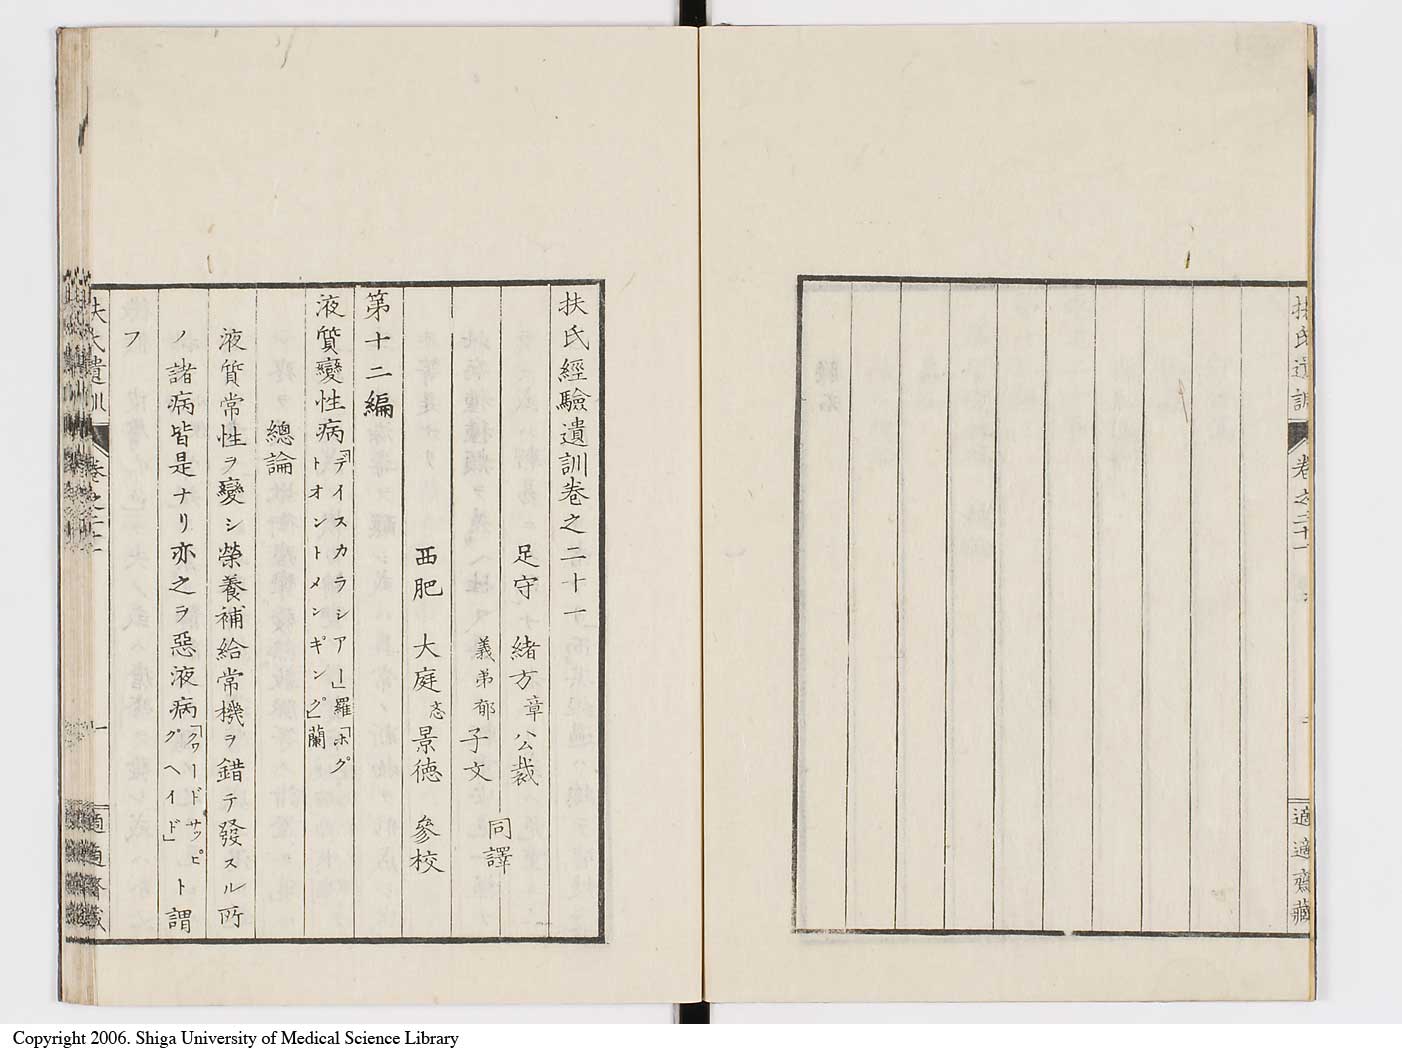 扶氏遺訓 卷之二十一 適適齋藏
扶氏經驗遺訓卷之二十一
足守 緒方章公裁
義弟郁子文 同譯
西肥 大庭忞景德 參校
第十二編
液質變性病「デイスカラシアー」羅「ホグトオントメンギング」蘭
總論
液質常性ヲ變シ榮養補給常機ヲ錯テ發スル所
ノ諸病皆是ナリ亦之ヲ惡液病「クワードサッピグヘイド」ト謂
フ
扶氏遺訓 卷之二十一 一 適適齋藏
Copyright 2006. Shiga University of Medical Science Library